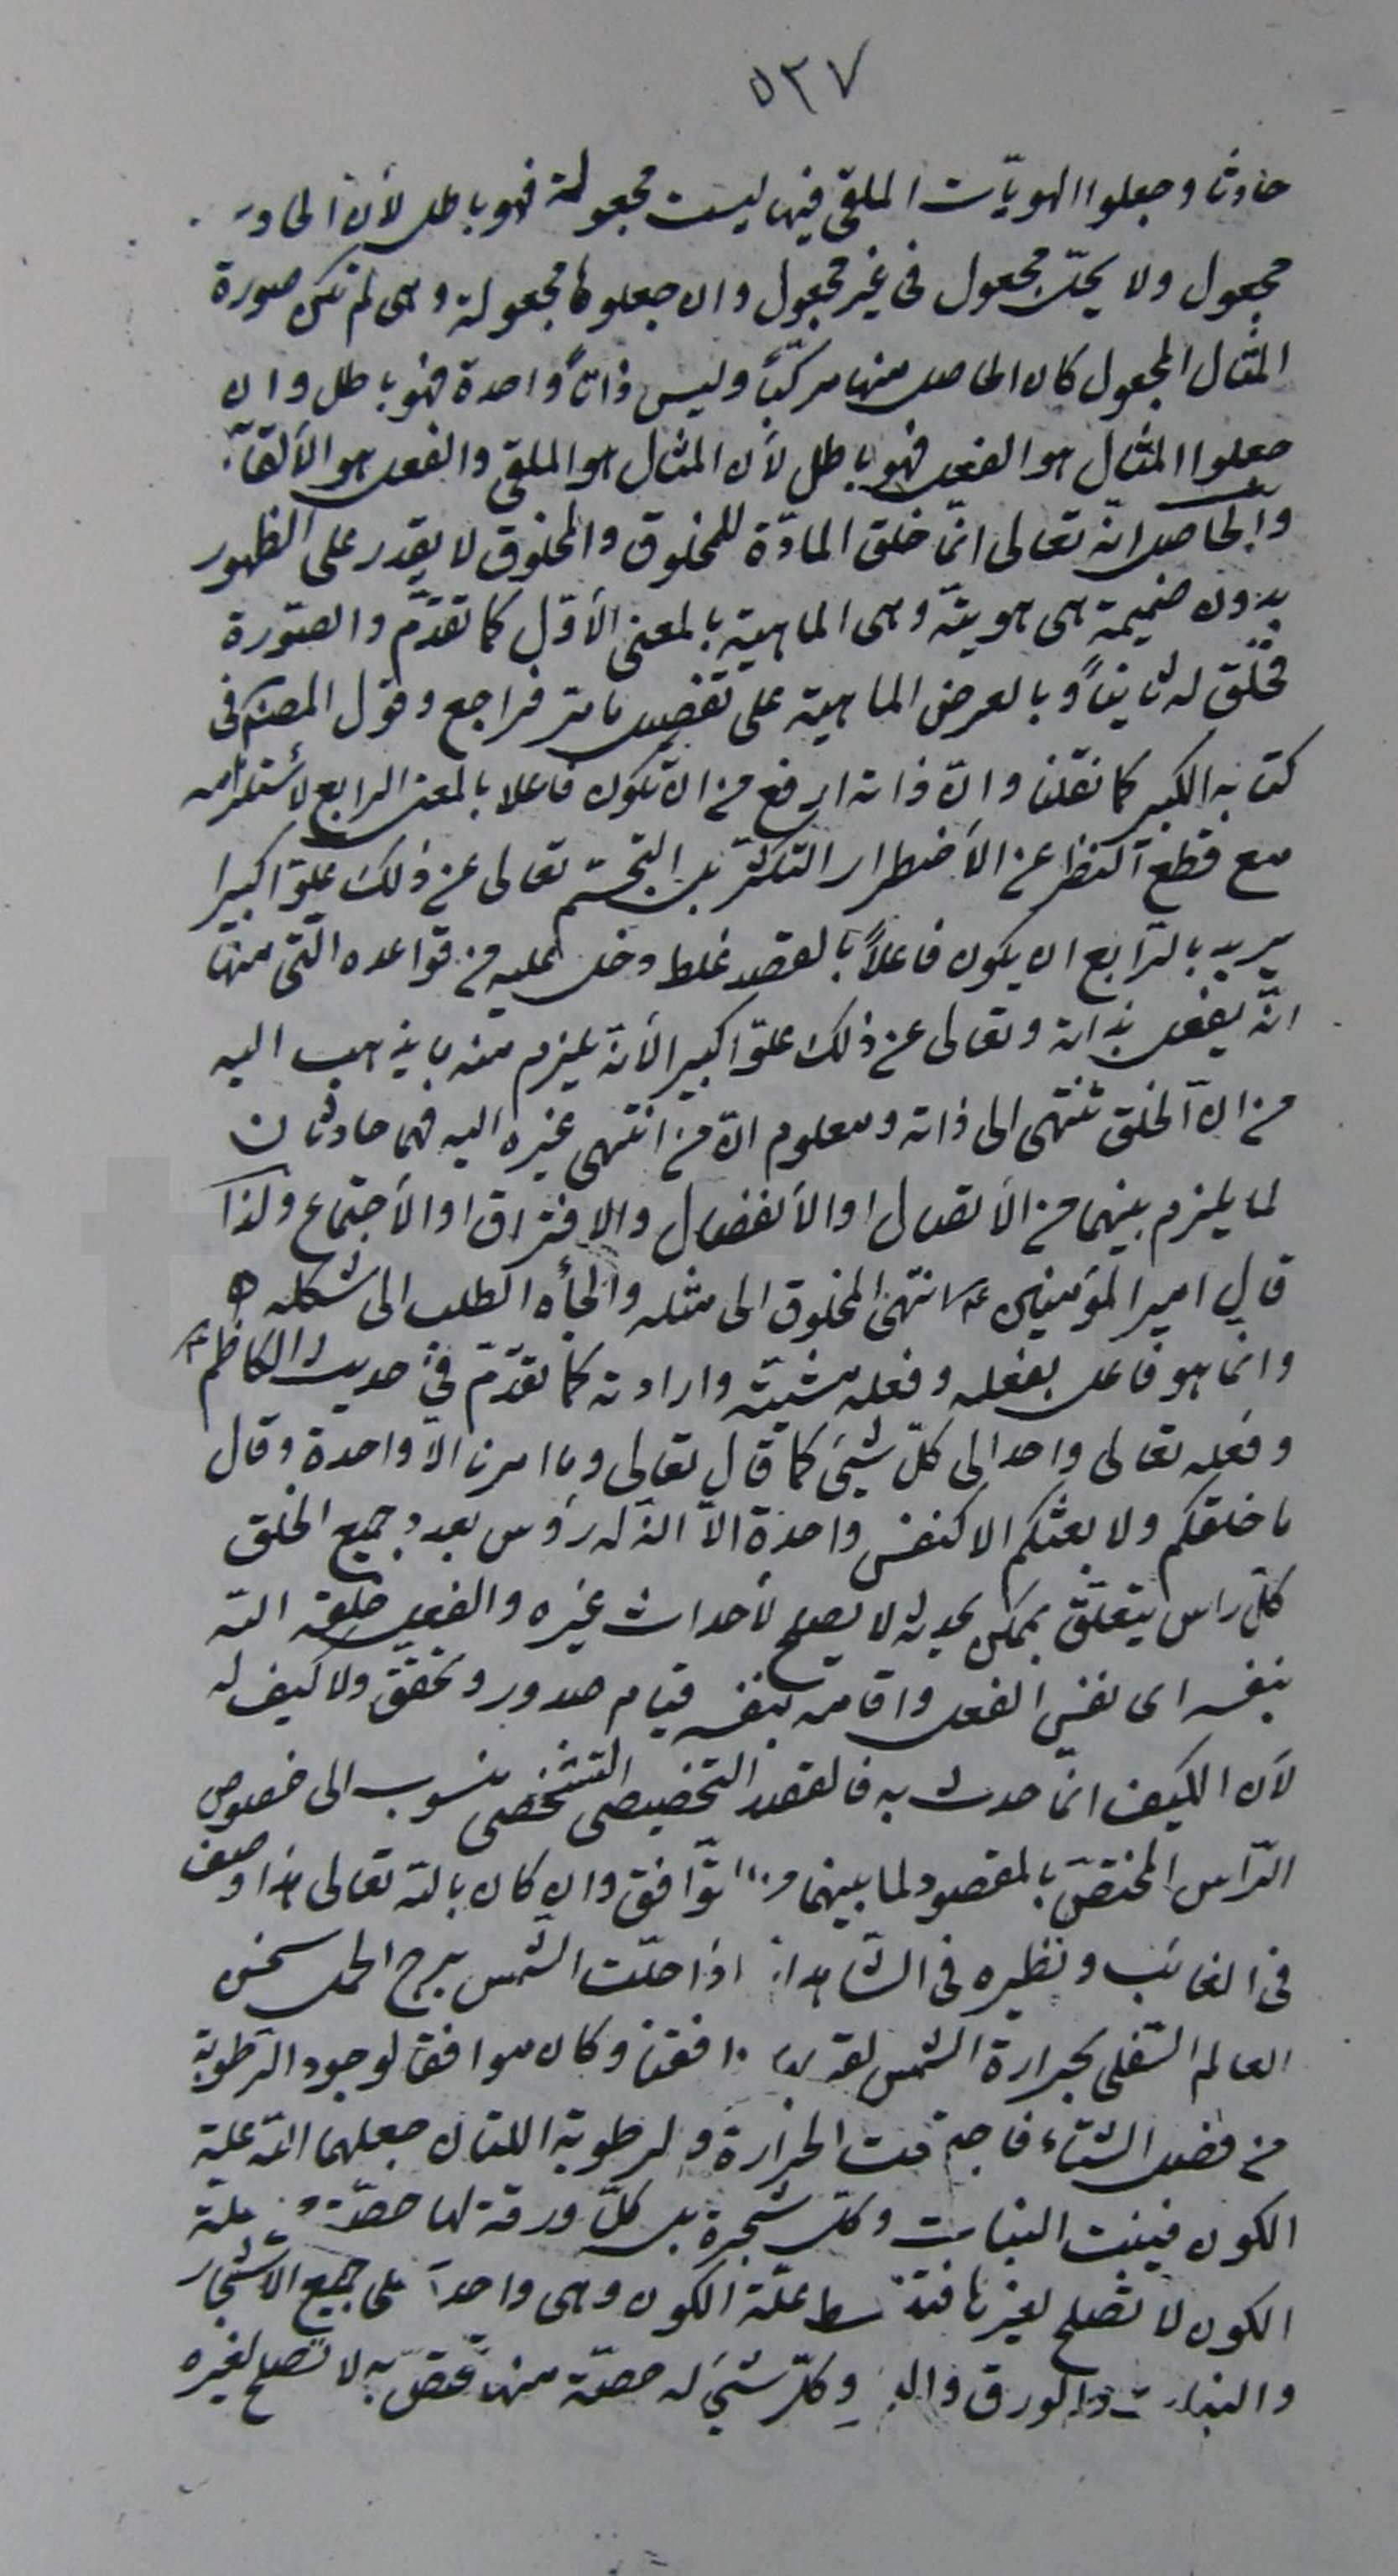 ٥٣٧
حادثا وجعلوا الهويّات الملقى فيها ليست مجعولة فهو باطل لأن الحادث
مجعول ولا يحلّ مجعول فى غير مجعول وان جعلوها مجعولة وهى لم تكن صورة
المثال المجعول كان الحاصل منها مركّباً وليس ذاتاً واحدة فهو باطل وان
جعلوا المثال هو الفعل فهو باطل لأن المثال هو الملقى والفعل هو الألقآء
والحاصل انّه تعالى انّما خلق المادّة للمخلوق والمخلوق لا يقدر على الظهور
بدون ضميمة هى هويته وهى الماهية بالمعنى الأوّل كما تقدّم والصّورة
فخلق له ثانياً وبالعرض الماهية على تفصيل ما مرّ فراجع وقول المصنّف فى
كتابه الكبير كما نقلنا وانّ ذاته ارفع من ان يكون فاعلا بالمعنى الرابع لأستلزامه
مع قطع النظر عن الأضطرار التكثّر بل التجسّم تعالى عن ذلك علوّا كبيرا
يريد بالرّابع ان يكون فاعلاً بالقصد غلط دخل عليه من قواعده الّتى منها
انّه يفعل بذاته وتعالى عن ذلك علوّا كبيرا لأنّه يلزم منه ما يذهب اليه
من انّ الخلق تنتهى الى ذاته ومعلوم انّ من انتهى غيره اليه فهما حادثان
لما يلزم بينهما من الأتصال او الأنفصال والافتراق او الأجتماع ولذا
قال امير المؤمنين ع انتهى المخلوق الى مثله والجأه الطلب الى شكله ه
وانما هو فاعل بفعله وفعله مشيته وارادته كما تقدّم فى حديث الكاظم ع
وفعله تعالى واحد الى كلّ شئ كما قال تعالى وما امرنا الّا واحدة وقال
ما خلقكم ولا بعثكم الا كنفس واحدة الّا انّ له رؤس بعدد جميع الخلق
كلّ راس يتعلّق بممكن يحدثه لا يصلح لأحداث غيره والفعل خلقه الله
بنفسه اى نفس الفعل واقامه بنفسه قيام صدور وتحقق ولا كيف له
لأن الكيف انّما حدث به فالقصد التخصيصى التشخصى منسوب الى خصوص
الرّاس المختصّ بالمقصود لما بينهما من التّوافق وان كان بالله تعالى هذا وصف
فى الغائب ونظيره فى الشّاهد انّه اذا حلّت الشّمس برج الحمل سخن
العالم السّفلى بحرارة الشمس لقربها وافقنا وكان موافقا لوجود الرّطوبة
من فضل الشتاء فاجتمعت الحرارة والرطوبة اللتان جعلهما الله علية
الكون فينبت النبات وكلّ شجرة بل كلّ ورقة لها حصّة من علة
الكون لا تصلح لغيرها فتنبسط علّة الكون وهى واحدة على جميع الأشجار
والنبات والورق وكلّ شئ له حصّة منها تختصّ به لا تصلح لغيره